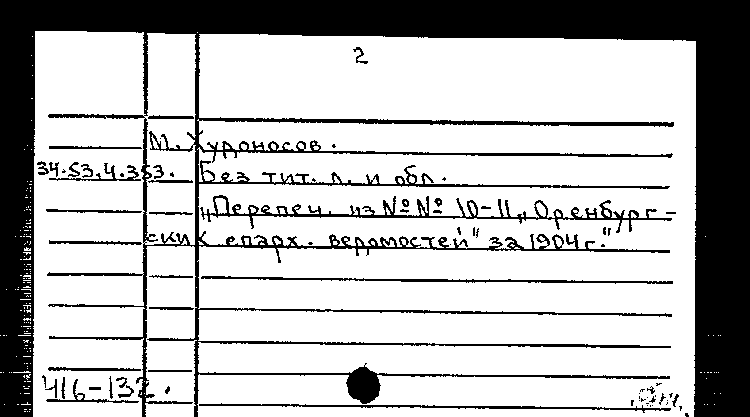 2
М. Худоносов.
34.53.4.353. Без тит. л. и обл.
„Перепеч. из №№ 10-11 „Оренбург-
ских епарх. ведомостей" за 1904 г."
416-132.